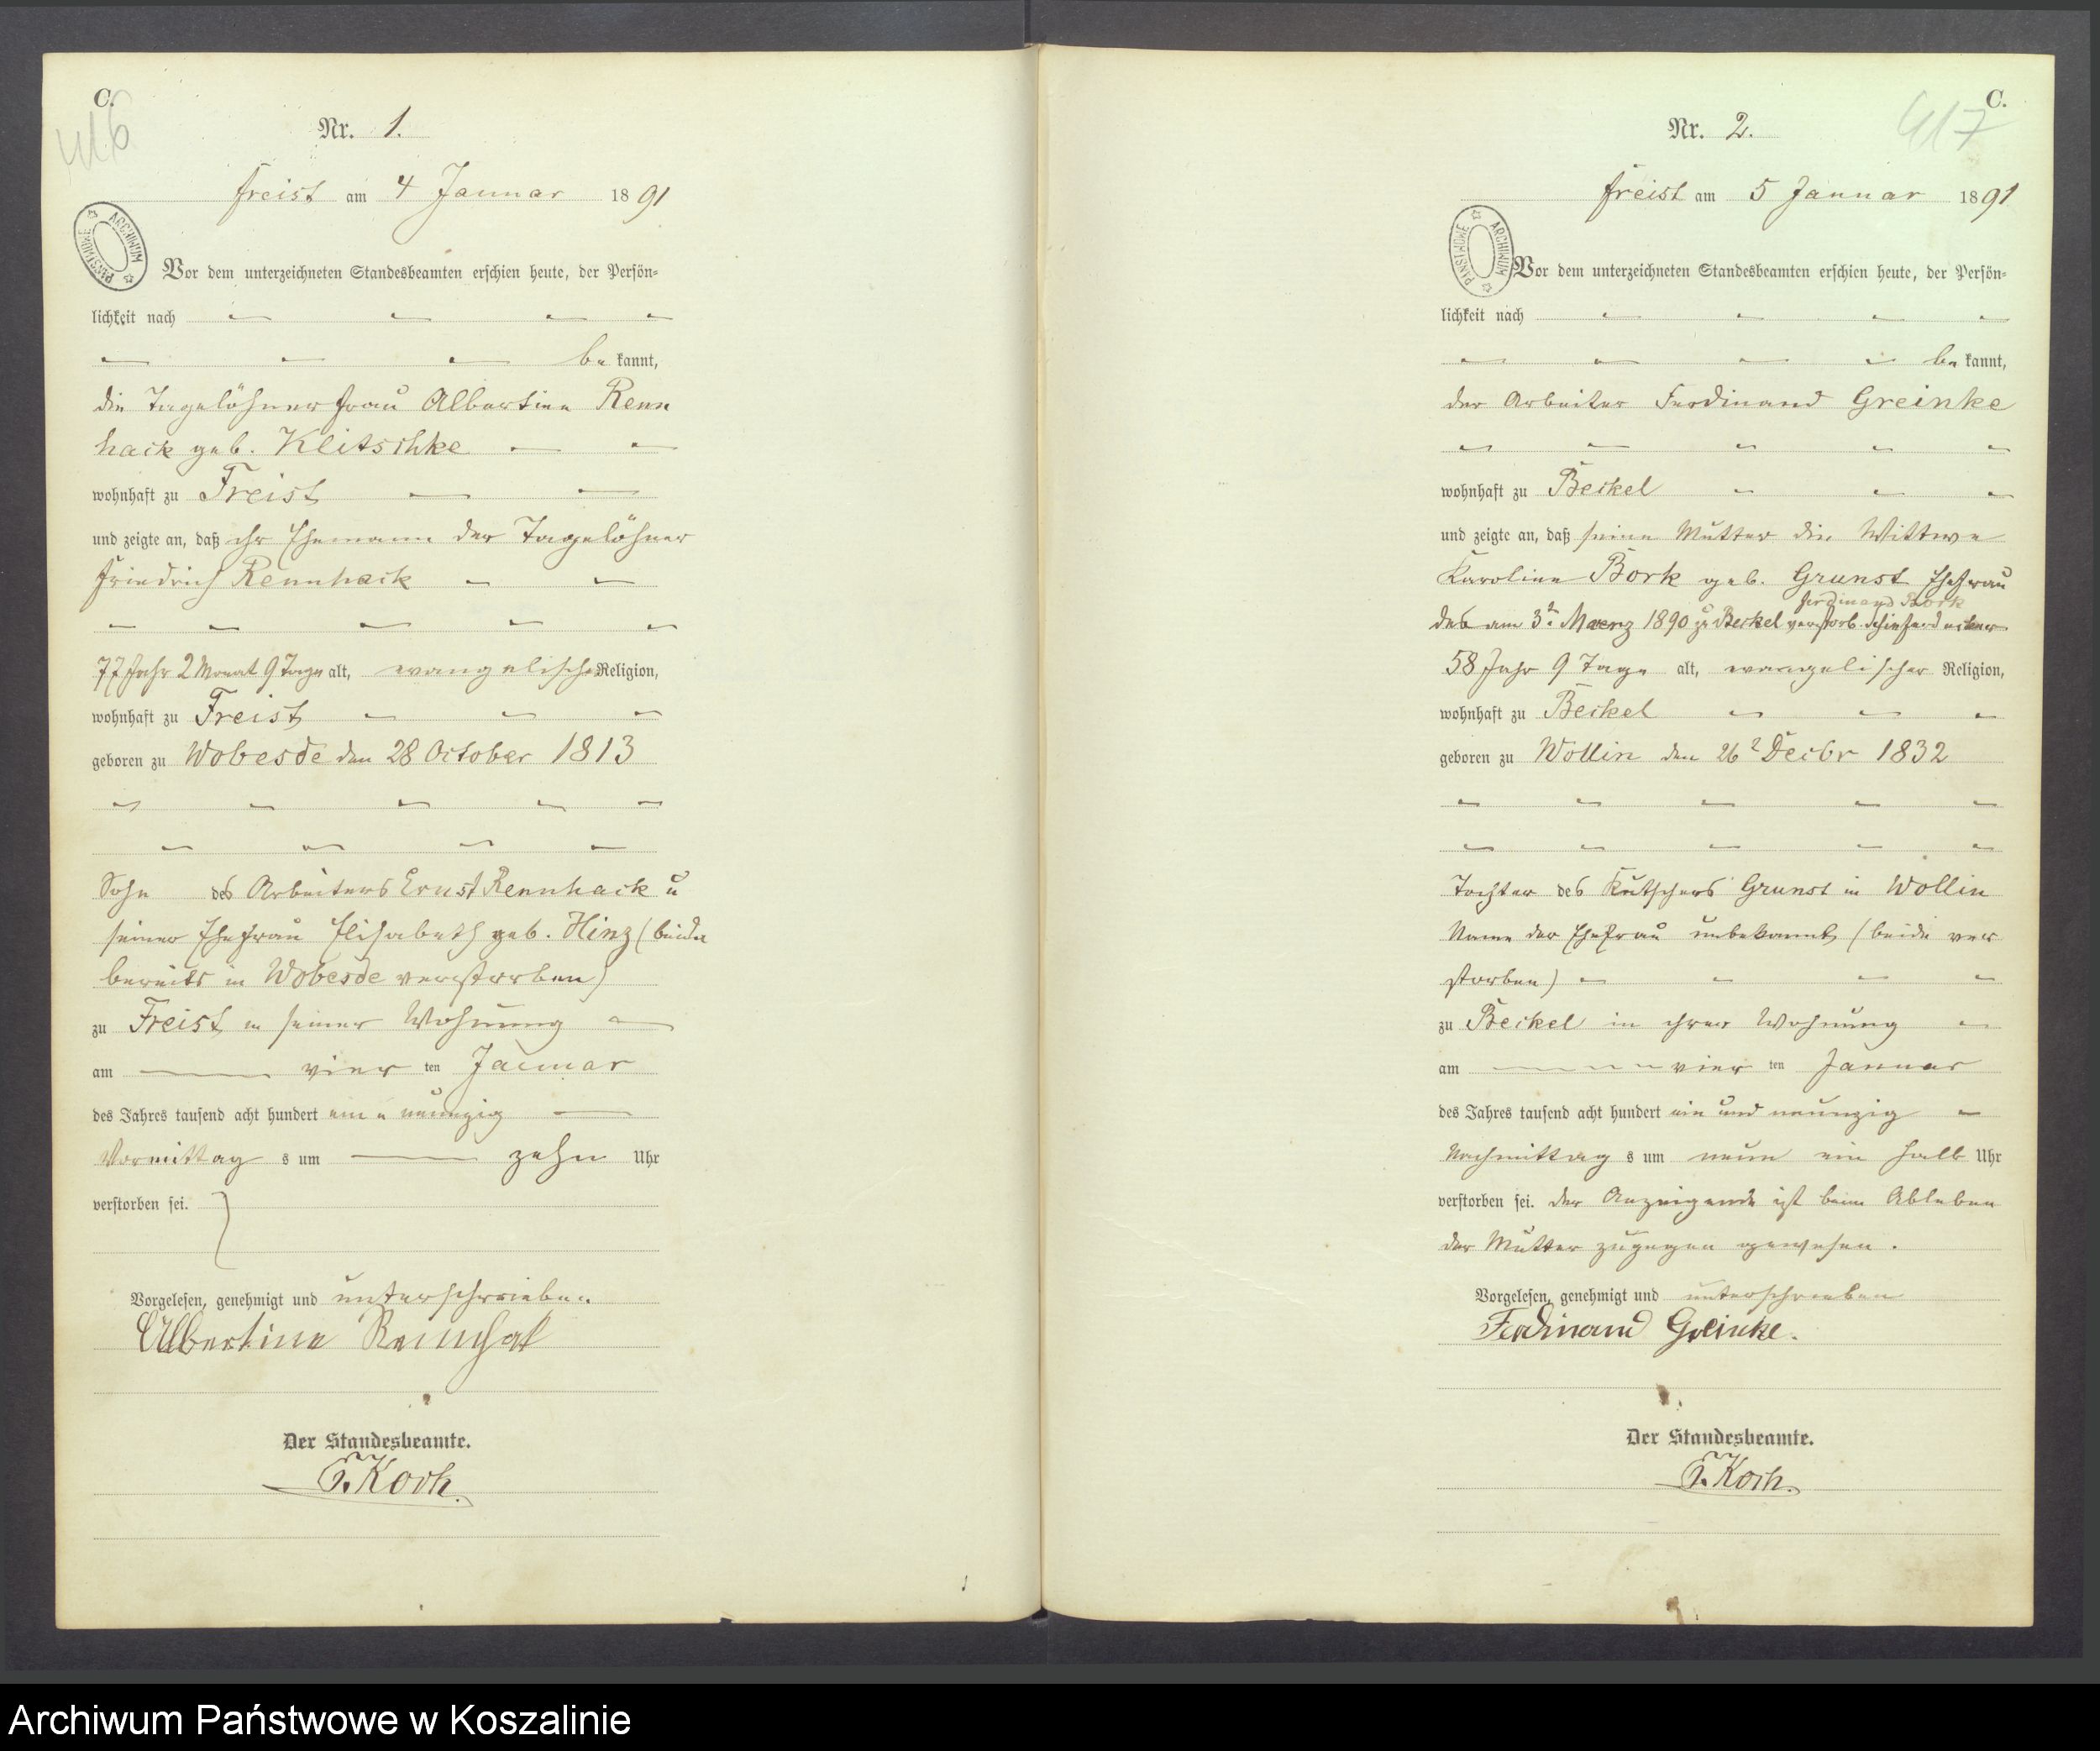 C.
416
Nr. 1.
Freist am 4 Januar 1891
ARCHIWUM PAŃSTWOWE
Vor dem unterzeichneten Standesbeamten erschien heute, der Persön-
lichkeit nach
be kannt,
die Tagelöhnerfrau Albertine Renn
hack geb. Klitschke
wohnhaft zu Freist
und zeigte an, daß ihr Ehemann der Tagelöhner
Friedrich Rennhack
77 Jahr 2 Monat 9 Tage alt, evangelischer Religion,
wohnhaft zu Freist
geboren zu Wobesde den 28 October 1813
Sohn des Arbeiters Ernst Rennhack u
seiner Ehefrau Elisabeth geb. Hinz (beide
bereits in Wobesde verstorben)
zu Freist in seiner Wohnung
am vier ten Januar
des Jahres tausend acht hundert ein u neunzig
Vormittag s um zehn Uhr
verstorben sei.
Vorgelesen, genehmigt und unterschrieben
Albertine Rennhak
Der Standesbeamte.
Koch.
C.
417
Nr. 2.
Freist am 5 Januar 1891
ARCHIWUM PAŃSTWOWE
Vor dem unterzeichneten Standesbeamten erschien heute, der Persön-
lichkeit nach
be kannt,
der Arbeiter Ferdinand Greinke
wohnhaft zu Beckel
und zeigte an, daß seine Mutter die Wittwe
Karoline Bork geb. Grunst Ehefrau
Ferdinand Bork
des am 3t. Maerz 1890 zu Beckel verstorb.
58 Jahr 9 Tage alt, evangelischer Religion,
wohnhaft zu Beckel
geboren zu Wollin den 26t Decbr 1832
Tochter des Kutschers Grunst in Wollin
Name der Ehefrau unbekannt (beide ver
storben)
zu Beckel in ihrer Wohnung
am vier ten Januar
des Jahres tausend acht hundert ein und neunzig
Nachmittag s um neun ein halb Uhr
verstorben sei. der Anzeigende ist beim Ableben
der Mutter zugegen gewesen.
Vorgelesen, genehmigt und unterschrieben
Ferdinand Greinke.
Der Standesbeamte.
Koch.
Archiwum Państwowe w Koszalinie